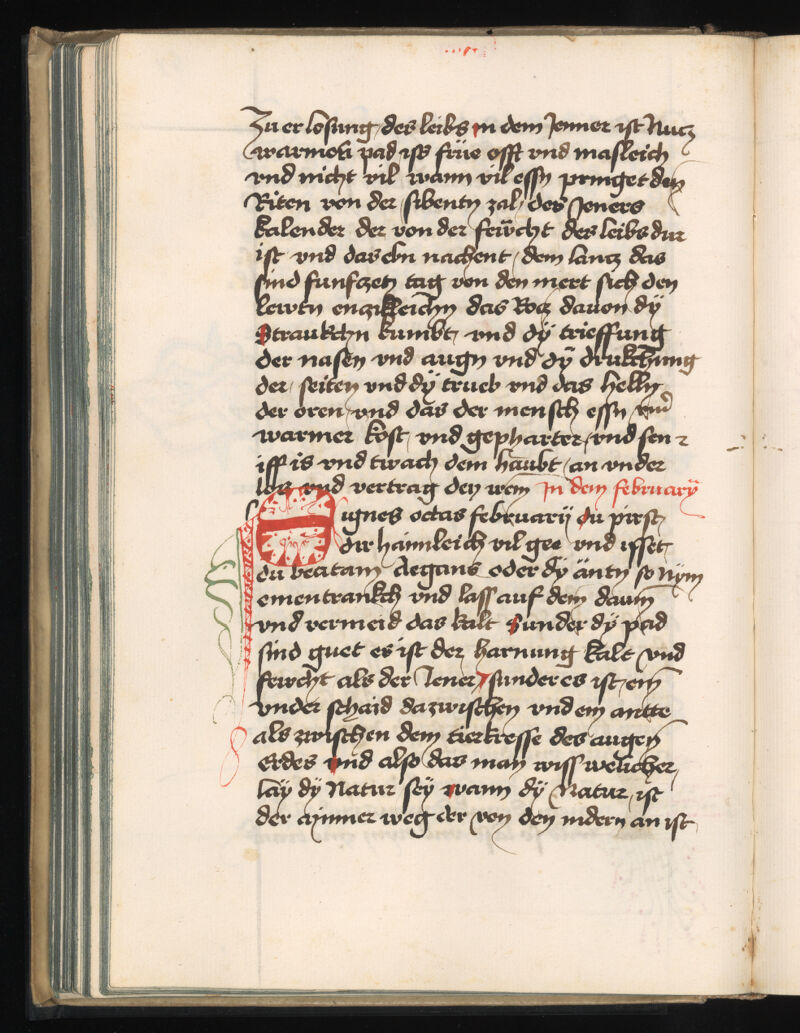 Zu er losung des leibs in dem Jenner ist Nucz
warmew pad iss früe offt vnd masleich
vnd nicht vil wann vil essn pringet den
Riten von der sibentn zal des Jeners
kalender der von der fewcht des leibs dur
ist vnd das ebn nachent dem lancz das
sind funfzen tag von den mert sich den
lewtn enzikleichn das Rocz dauon dÿ
Straukchn kumbt vnd dÿ trieffung
der nasen vnd augn vnd dÿ drukchung
der seiten vnd dÿ trueb vnd das helln
der oren vnd das der mensch essn
warmer kost vnd gepharter vnd sen
iff is vnd twach dem haubt an vnder
vnd vertrag den wein In dem februarÿ
ugnes octas februarÿ du pirst
dir haimleich vil gee vnd isset
du beatam Aegans oder dÿ äntn so Nÿm
ementrankch vnd lass auf dem daum
vnd vermeid das kalt Sunder dÿ pad
sind guet es ist der harnung kalt vnd
fewcht als der Jener sunder es ist ein
vnder schaid dazwischen vnd ein antte
als zwischen dem tierkresse des augen
erdes vnd also das man wiss welicher
lay dÿ Natur seÿ wann dÿ Natur ist
der mÿnner weg der von den nidern an ist